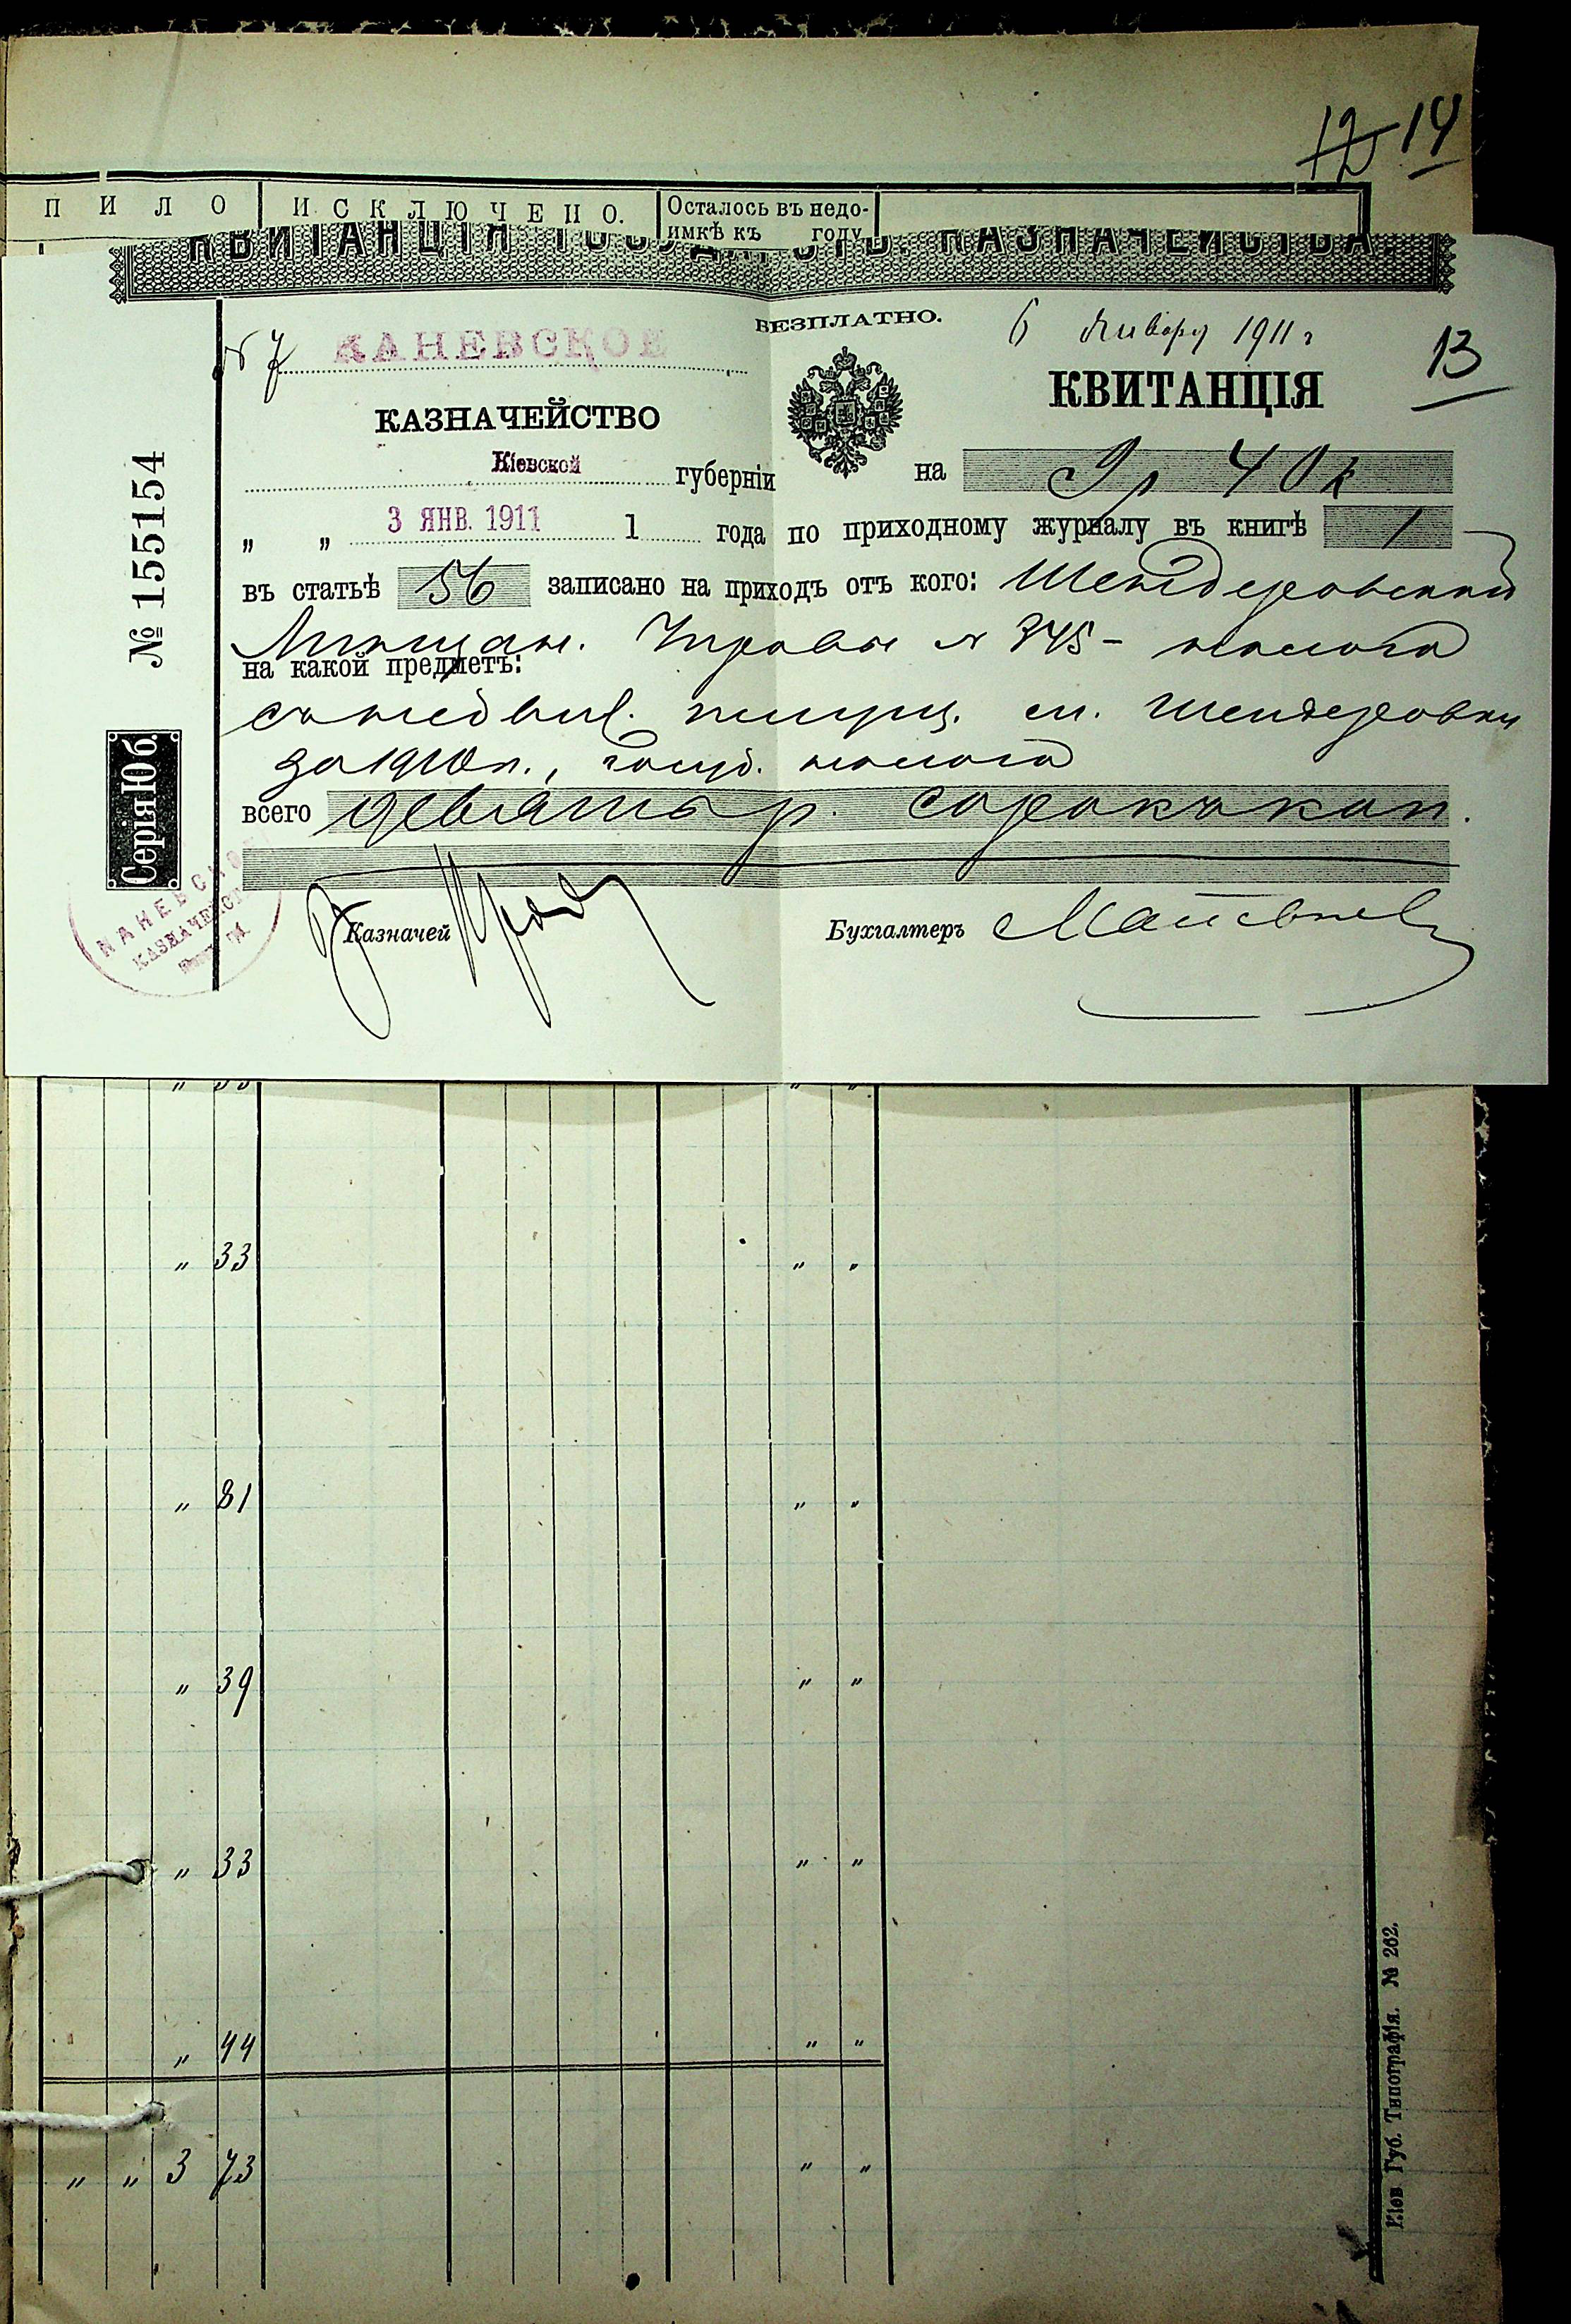 12 14
ПИЛО ИСКЛЮЧЕНО. Осталось въ недо-
имкѣ къ году
КВИТАНЦІЯ ГОСУДАРСТВ. КАЗНАЧЕЙСТВА.
БЕЗПЛАТНО. 6 Января 1911 г
№ 7 КАНЕВСКОЕ
13
КВИТАНЦІЯ
КАЗНАЧЕЙСТВО
Кіевской губерніи
на 9 р 40 к
" " 3 ЯНВ. 1911 1 года по приходному журналу въ книгѣ 1
въ статьѣ 56 записано на приходъ отъ кого: Шендеровской
Мѣщан. Управы № 345 - налога
на какой предметъ:
съ недвиж. имущ. м. Шендеровки
за 1910 г., госуд. налога
всего девять р. сорокъ коп.
Казначей
Бухгалтеръ
№ 155154
Серія Ю б.
КАНЕВСКОЕ
КАЗНАЧЕЙСТ
" 33 " "
" 33 " "
" 81 " "
" 39 " "
" 33 " "
" 44 " "
" " 3 73 " "
Кіев. Губ. Типографія. № 262.